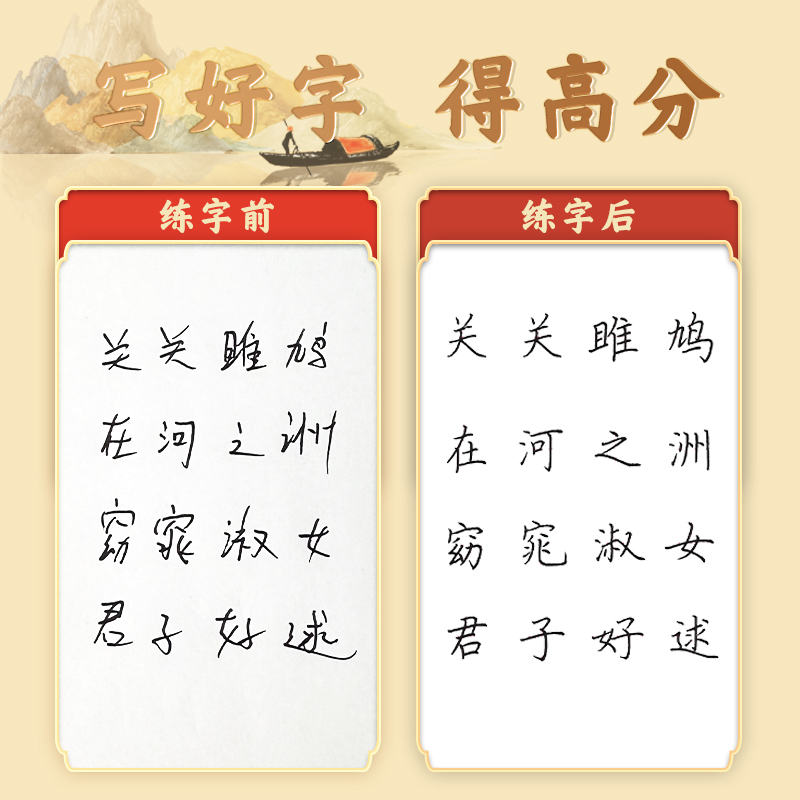 写好字 得高分
练字前
关关雎鸠
在河之洲
窈窕淑女
君子好逑
练字后
关关雎鸠
在河之洲
窈窕淑女
君子好逑